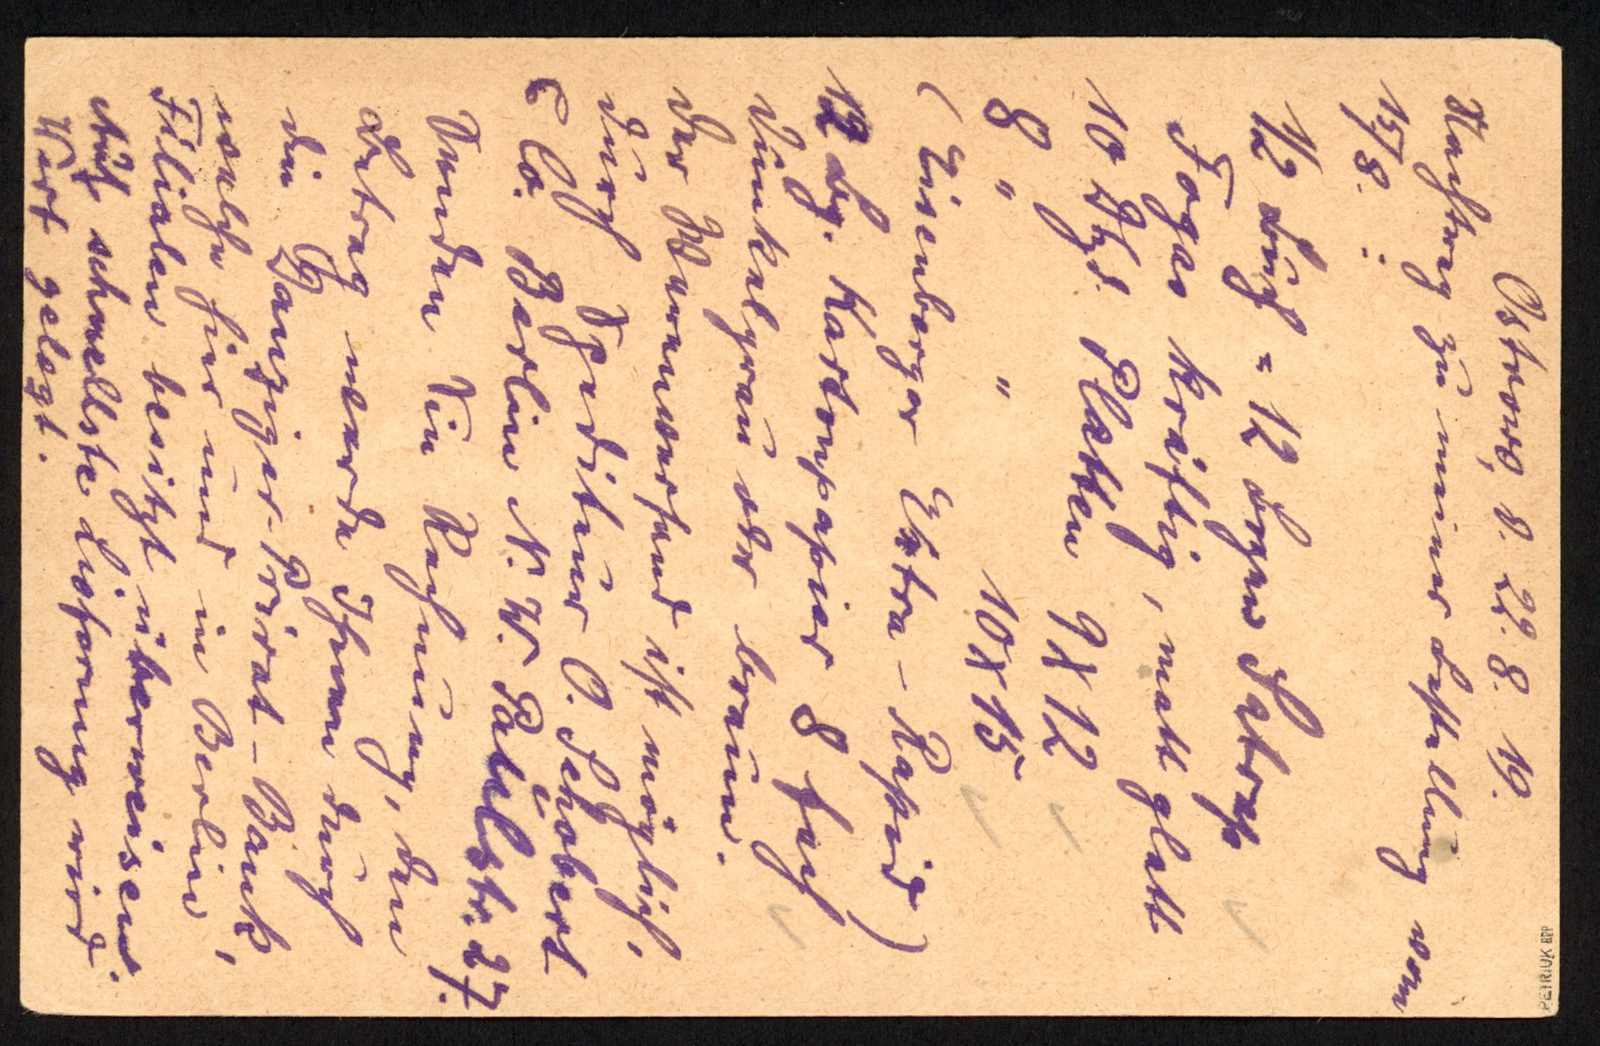 Ostrowo, d. 22. 8. 19.
Nachtrag zu meiner Bestellung vom
15/8. :
1/2 Buch = 12 Bogen Satrap
Fogas kräftig, matt glatt
10 Dtzd. Platten 9 X 12
8 " " 10 X 15
(Eisenberger Extra - Rapid)
12 Bg. Kartonpapier 8 fach
dunkelgrau oder braun.
Der Warenversand ist möglich,
durch Spediteur O. Schobert
& Co. Berlin N.W. Paulstr. 27.
Senden Sie Rechnung, den
Betrag werde Ihnen durch
die Danziger-Privat-Bank,
welche hier und in Berlin
Filialen besitzt überweisen.
Auf schnellste Lieferung wird
Wert gelegt.
PETRIUK BPP